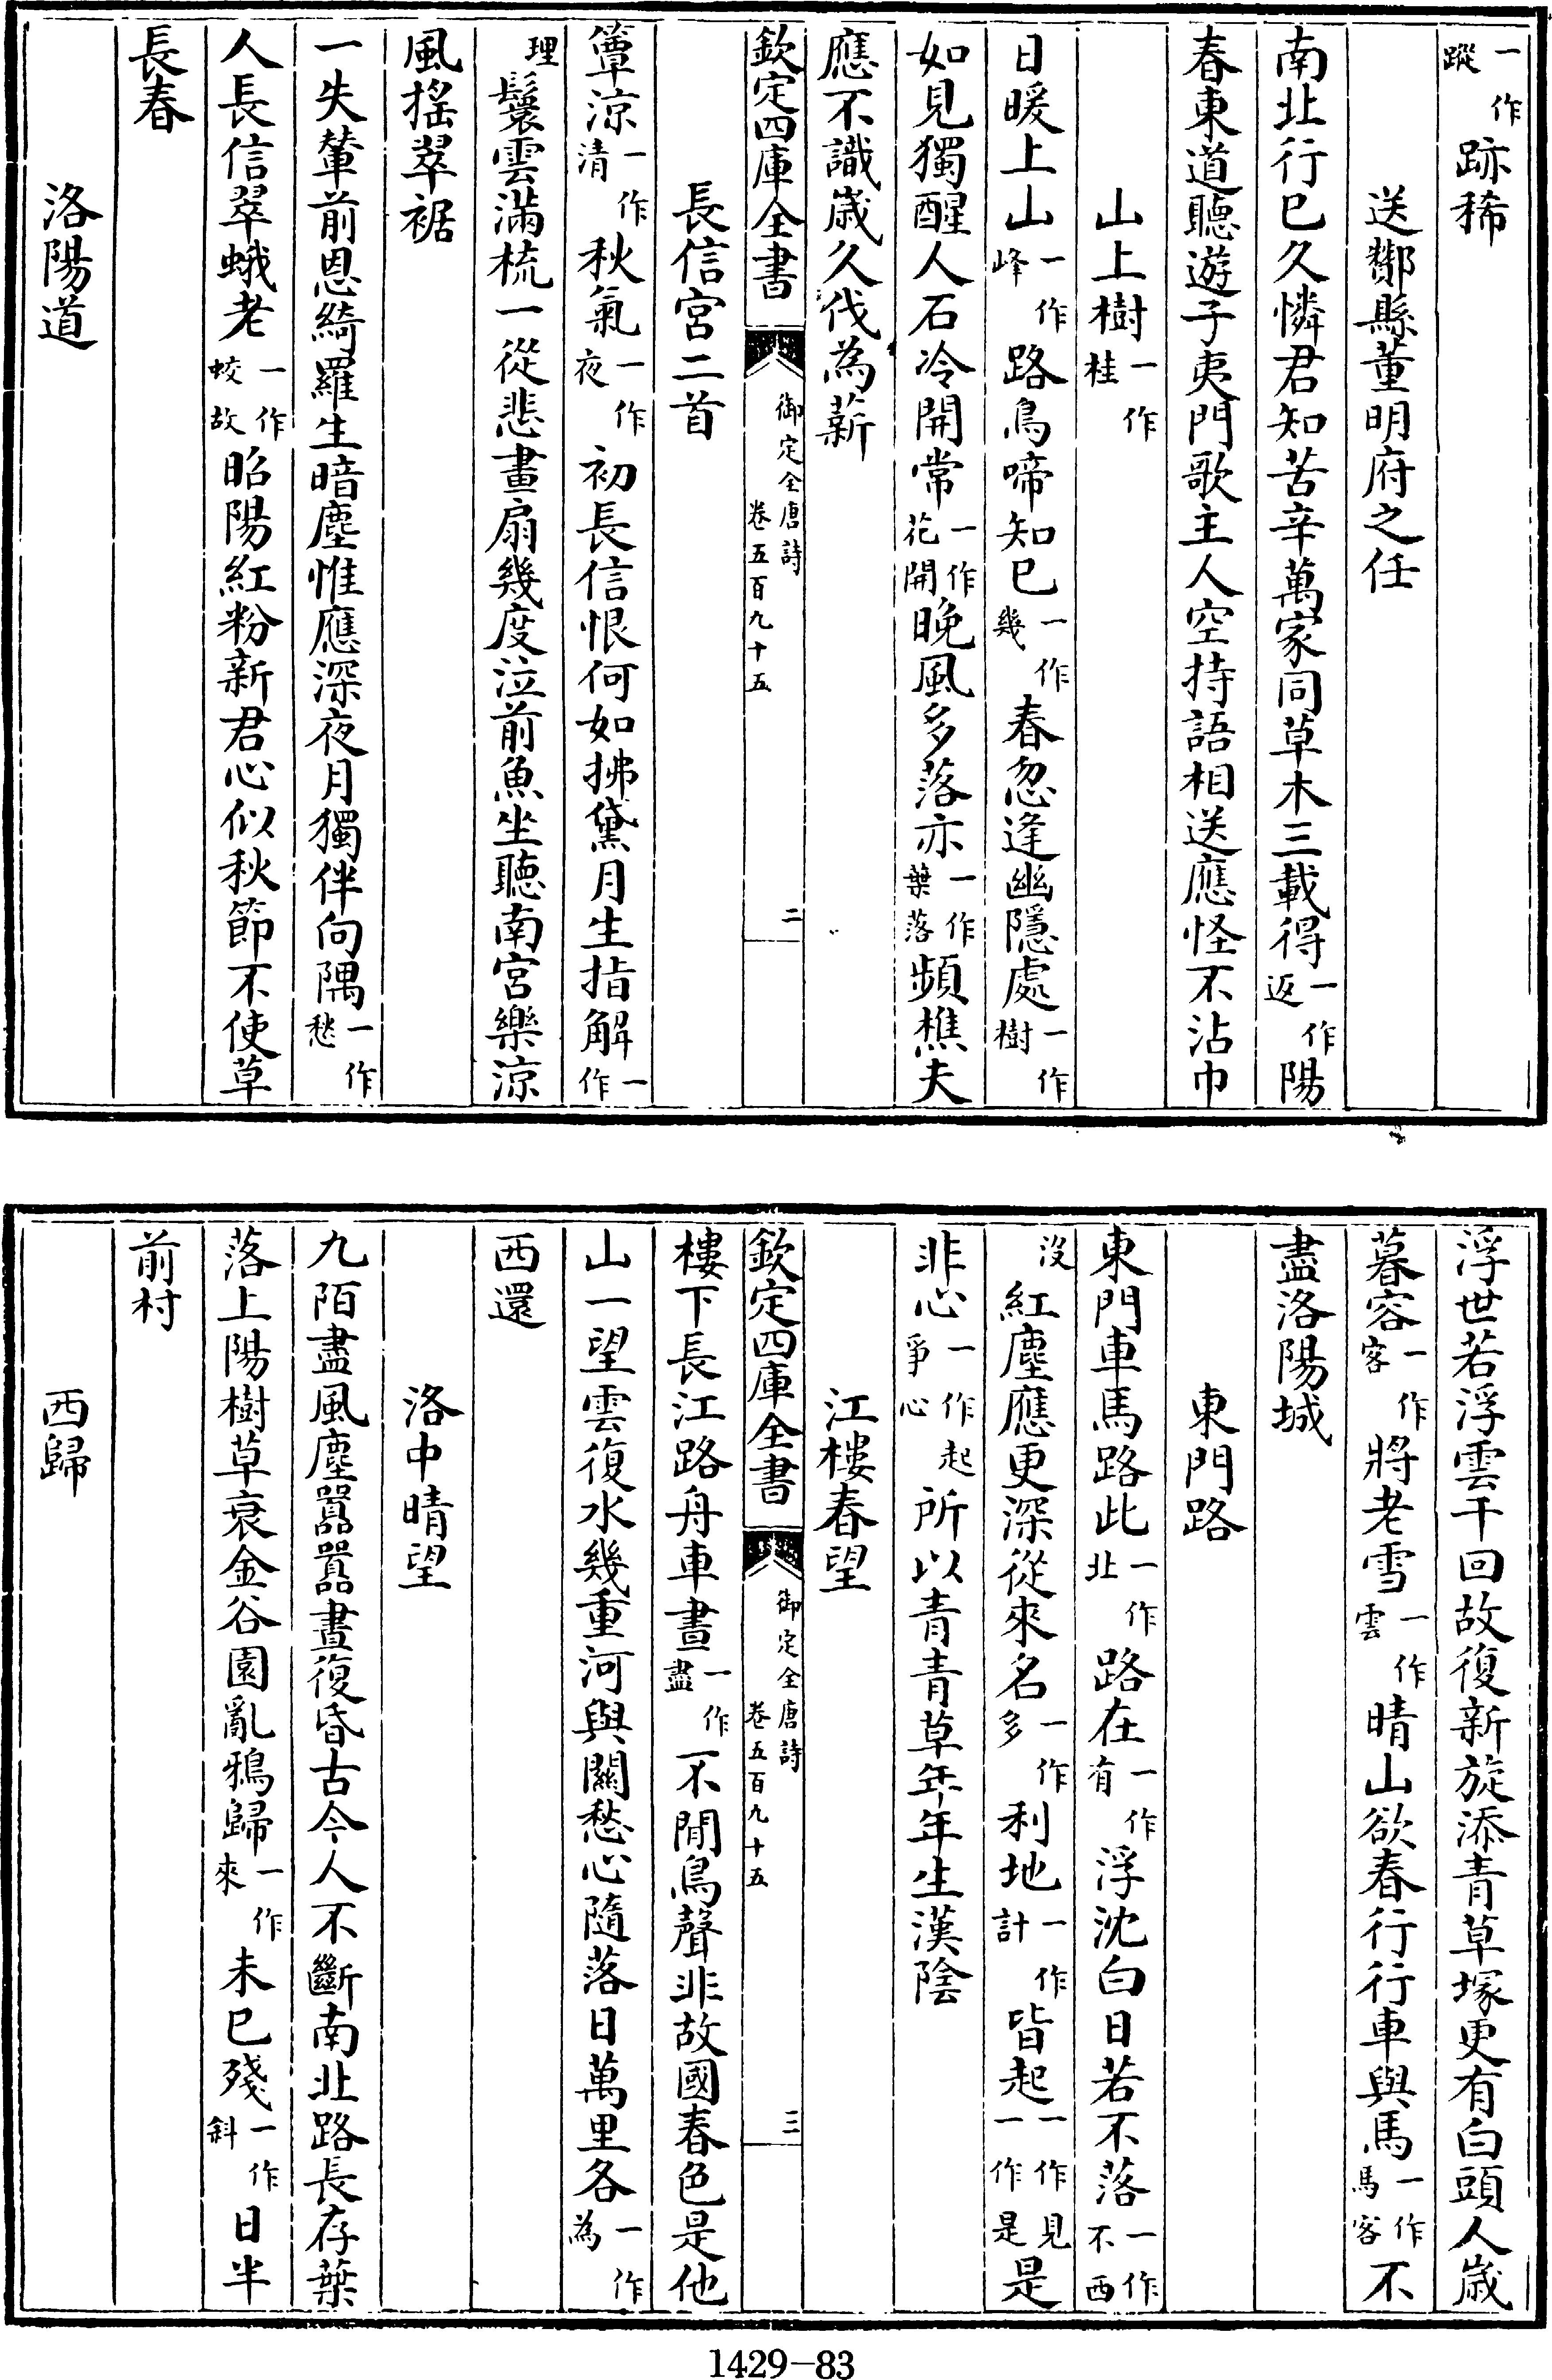 一作蹤跡稀
送鄼縣董明府之任
南北行已久憐君知苦辛萬家同草木三載得一作返陽
春東道聽遊子夷門歌主人空持語相送應怪不沾巾
山上樹一作桂
日暖上山一作峰路鳥啼知已一作幾春忽逢幽隱處一作樹
如見獨醒人石冷開常一作花開晚風多落亦一作葉落頻樵夫
應不識歲久伐為薪
欽定四庫全書
御定全唐詩
卷五百九十五
二
長信宮二首
簟涼一作清秋氣一作夜初長信恨何如拂黛月生指解一作
理鬟雲滿梳一從悲畫扇幾度泣前魚坐聽南宮樂涼
風搖翠裾
一失輦前恩綺羅生暗塵惟應深夜月獨伴向隅一作愁
人長信翠蛾老一作蛟故昭陽紅粉新君心似秋節不使草
長春
洛陽道
浮世若浮雲千回故復新旋添青草塚更有白頭人歲
暮容一作客將老雪一作雲晴山欲春行行車與馬一作馬客不
盡洛陽城
東門路
東門車馬路此一作北路在一作有浮沈白日若不落一作不西
沒紅塵應更深從來名一作多利地一作計皆起一作見一作是是
非心一作起爭心所以青青草年年生漢陰
江樓春望
欽定四庫全書
御定全唐詩
卷五百九十五
三
樓下長江路舟車晝一作盡不閒鳥聲非故國春色是他
山一望雲復水幾重河與關愁心隨落日萬里各一作為
西還
洛中晴望
九陌盡風塵囂囂晝復昏古今人不斷南北路長存葉
落上陽樹草衰金谷園亂鴉歸一作來未已殘一作斜日半
前村
西歸
1429-83